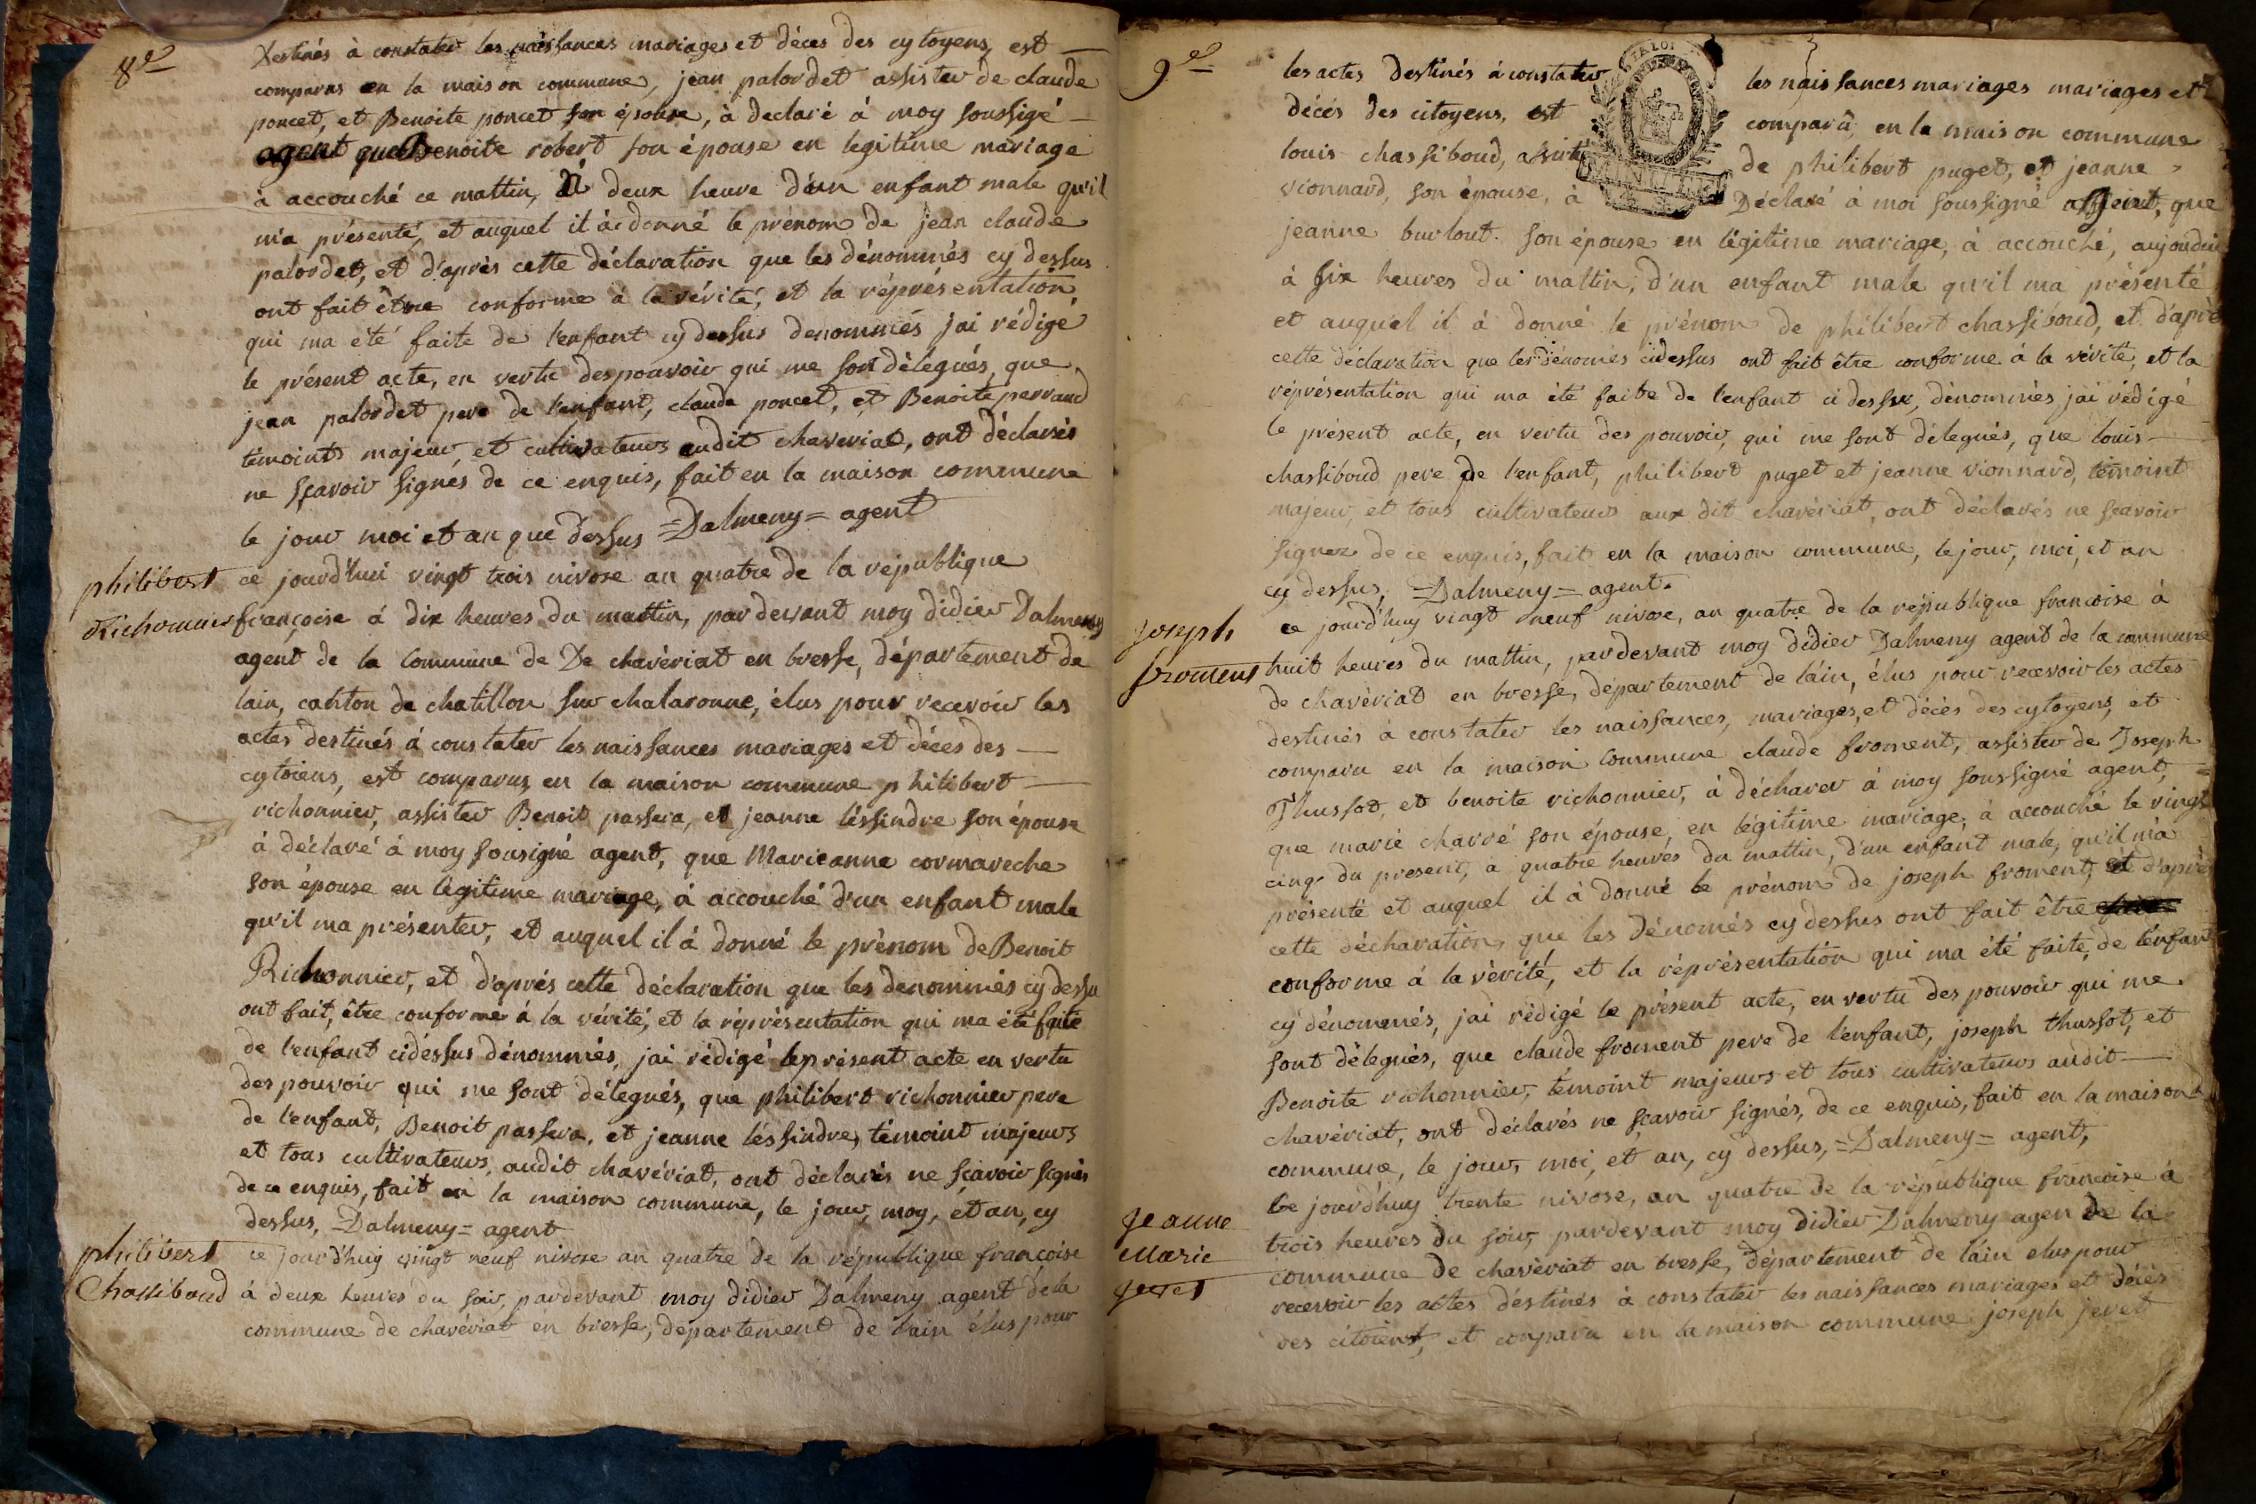 8e
destinés à constater les naissances mariages et déces des cytoyens, est
comparus en la maison commune, jean palordet assister de claude
poncet, et Benoite poncet son épouse, à declaré à moy soussigé
agent que Benoite robert son épouse en legitime mariage
à accouché ce mattin, à deux heure d'un enfant male qu'il
m'a présenté, et auquel il à donné le prénom de jean claude
palordet, et d'après cette déclaration que les dénommés cy dessus
ont fait être conforme à la vérité, et la réprésentation
qui ma été faite de l'enfant cy dessus denommés jai rédigé
le présent acte, en vertu des pouvoir qui me sont délegués, que
jean palordet pere de l'enfant, claude poncet, et Benoite perraud
témoints majeur, et cultivateurs audit chaveriat, ont déclarés
ne sçavoir signés de ce enquis, fait en la maison commune
le jour moi et an que dessus =Dalmeny= agent
philibert
Richonnier
ce jourd'hui vingt trois nivose an quatre de la république
françoise à dix heures du mattin, par devant moy didier Dalmeny
agent de la commune de De chavériat en bresse, département de
lain, canton de chatillon sur chalaronne, élus pour recevoir les
actes destinés à constater les naissances mariages et déces des
cytoiens, est comparus en la maison commune philibert
richonnier, assister Benoit passera, et jeanne léssindre son épouse
à déclaré à moy sousigné agent, que Marieanne cormareche
son épouse en légitime mariage, à accouché d'un enfant male
qu'il ma présenter, et auquel il à donné le prénom de Benoit
Richonnier, et d'aprés cette déclaration que les denommés cy dessu
ont fait, être conforme à la vérité, et la réprésentation qui ma été faite
de l'enfant cidéssus dénommés, jai rédigé le présent acte en vertu
des pouvoir qui me sont délegués, que philibert richonnier pere
de l'enfant, Benoit passera, et jeanne léssindre, témoint majeurs
et tous cultivateurs, audit chavériat, ont déclarés ne sçavoir signés
de ce enquis, fait en la maison commune, le jour, moy, et an, cy
dessus, =Dalmeny= agent
philibert
Chassiboud
ce jourd'huy vingt neuf nivose an quatre de la république françoise
à deux heures du soir, pardevant moy didier Dalmeny agent de la
commune de chavériat en bresse, département de lain élus pour
9e
les actes destinés à constater les naissances mariages mariages et
décés des citoyens, est comparû, en la maison commune
louis chassiboud, assisté de philibert puget, et jeanne
vionnard, son épouse, à Déclaré à moi soussigné agent, que
jeanne burlout son épouse en légitime mariage, à accouché, aujoudui
à six heures du mattin, d'un enfant male qu'il ma présenté
et auquel il à donné le prénom de philibert chassiboud, et d'aprè
cette déclaration que les dénomés cidessus ont fait être conforme à la vérité, et la
réprésentation qui ma été faite de l'enfant ci dessu, dénommés jai rédigé
le présent acte, en vertu des pouvoir, qui me sont délegués, que louis
chassiboud pere de l'enfant, philibert puget et jeanne vionnard, témoint
majeur, et tous cultivateurs aux dit chavériat, ont déclarés ne scavoir
signez de ce enquis, fait en la maison commune, le jour, moi, et an
cy dessus, =Dalmeny= agent.
joseph
froment
ce jourd'huy vingt neuf nivose, an quatre de la république francoise à
huit heures du mattin, pardevant moy didier Dalmeny agent de la commune
de chavèriat en bresse, département de láin, élus pour recevoir les actes
destinés à constater les naissances, mariages, et décés des cytoyens, et
comparu en la maison commune claude froment, assister de Joseph
Thussot, et benoite richonnier, à décharer à moy soussigné agent,
que marie charré son épouse, en légitime mariage, à accouché le vingt
cinq du present, à quatre heures du mattin, d'un enfant male, qu'il m'a
présenté et auquel il à donné le prénom de joseph froment, et d'aprés
cette décharation, que les dénomés cy dessus ont fait être
conforme à la vérité, et la réprésentation qui ma été faite, de l'énfant
cy dénommés, jai rédigé le présent acte, en vertu des pouvoir qui me
sont délegués, que claude froment pere de l'enfant, joseph thussot, et
Benoite richonnier, témoint majeurs et tous cultivateurs audit
chavériat, ont déclarés ne sçavoir signés, de ce enquis, fait en la maison
commune, le jour, moi, et an, cy dessus, =Dalmeny= agent,
jeanne
Marie
jeret
Ce jourd'huy trente nivose, an quatre de la république francoise à
trois heures du soir, pardevant moy didier Dalmeny agen de la
commune de chavèriat en bresse, département de láin elus pour
recevoir les actes déstinés à constater les naissances mariages et décés
des citoiens, et conparu en la maison commune joseph jeret